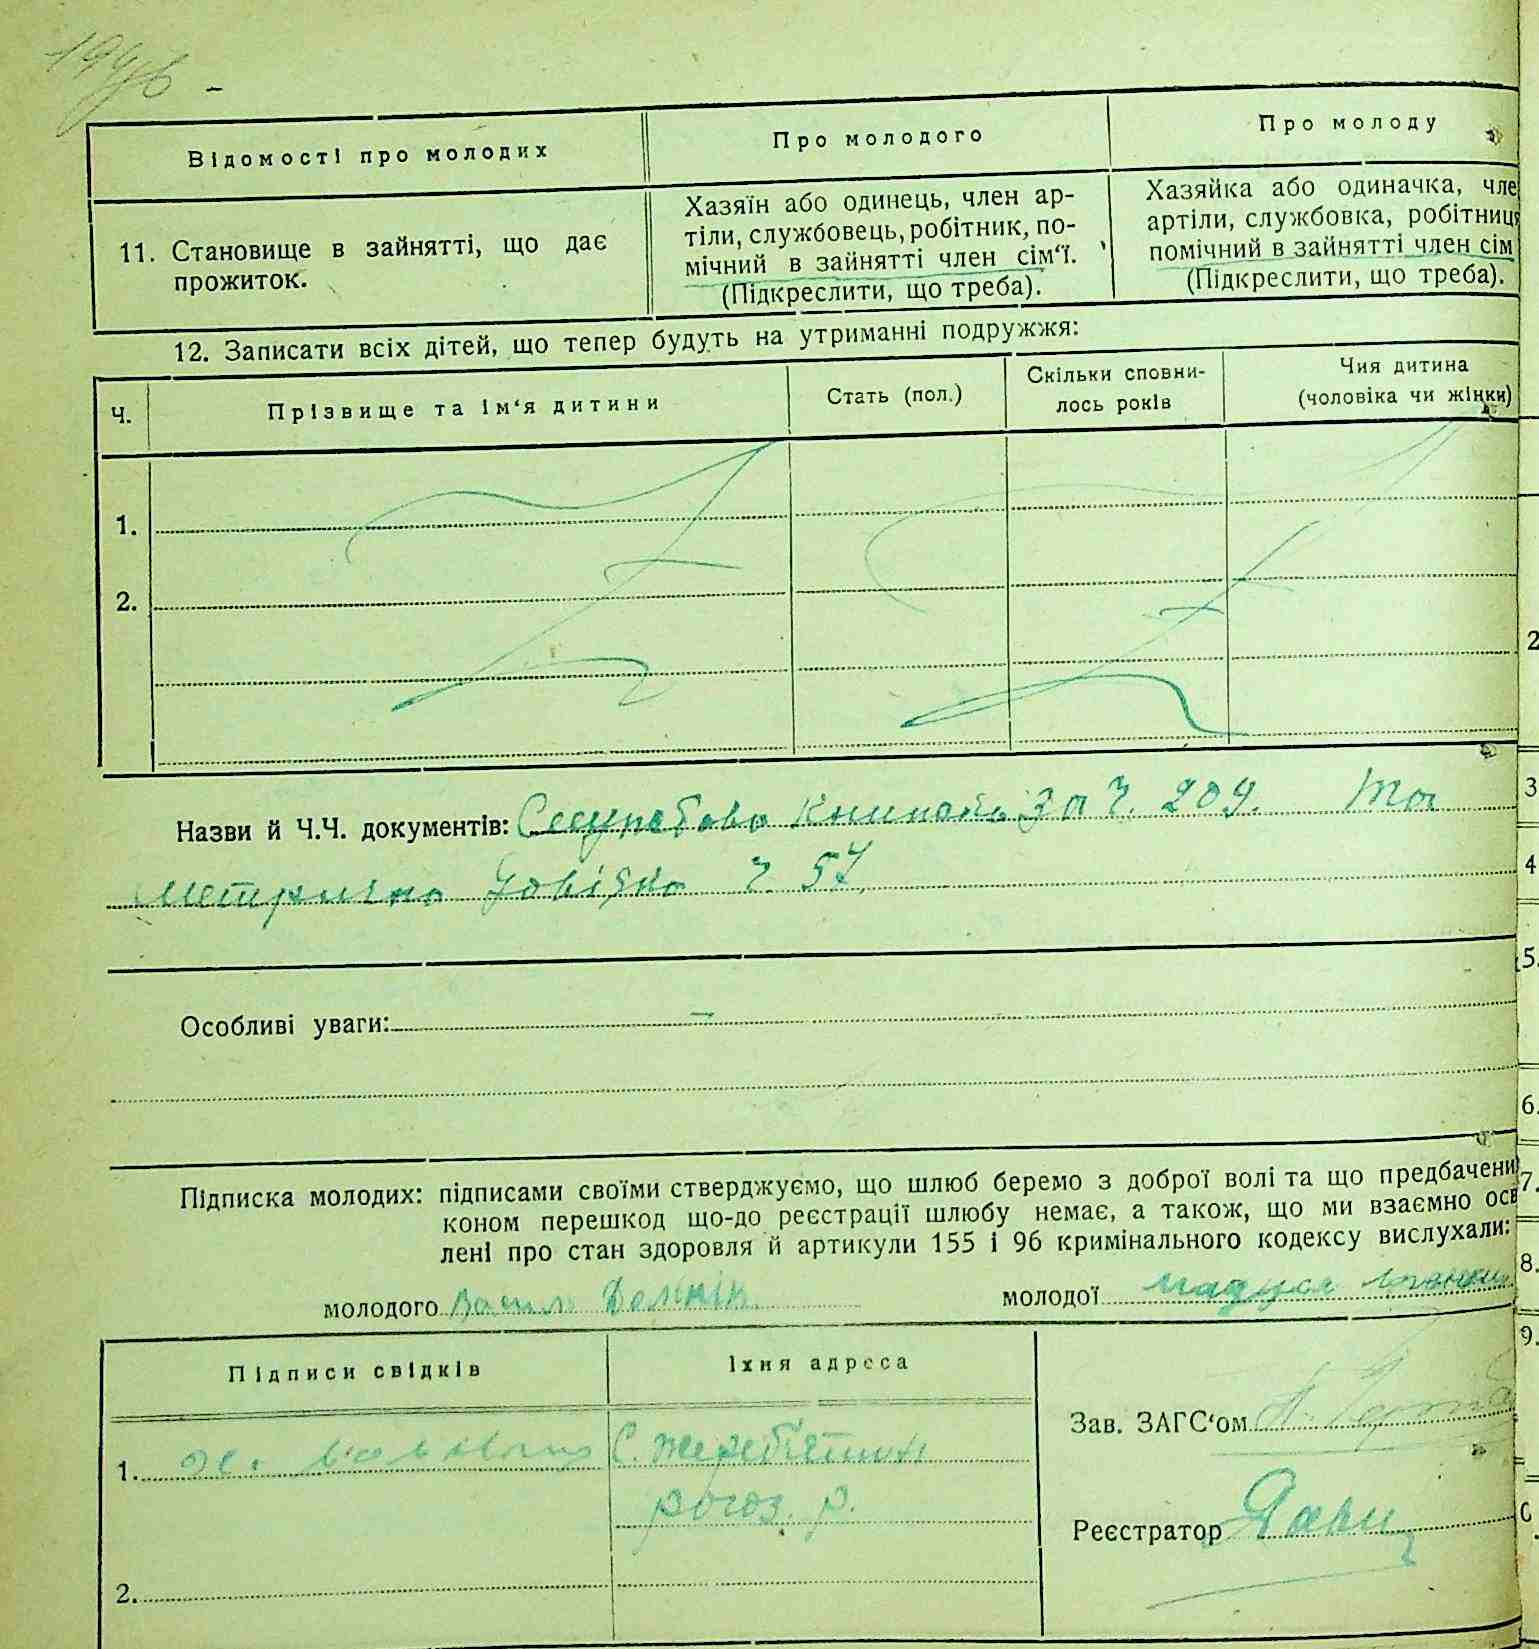 Відомості про молодих
Про молодого
Про молоду
11. Становище в зайнятті, що дає
прожиток.
Хазяїн або одинець, член ар-
тіли, службовець, робітник, по-
мічний в зайнятті член сім‘ї.
(Підкреслити, що треба).
Хазяйка або одиначка, чле
артіли, службовка, робітниця
помічний в зайнятті член сім
(Підкреслити, що треба).
12. Записати всіх дітей, що тепер будуть на утриманні подружжя:
Ч.
Прізвище та ім‘я дитини
Стать (пол.)
Скільки сповни-
лось років
Чия дитина
(чоловіка чи жінки)
1.
2.
Назви й Ч.Ч. документів: за ч. 209. та
Метрична ч. 57
Особливі уваги: —
Підписка молодих: підписами своїми стверджуємо, що шлюб беремо з доброї волі та що предбачени
коном перешкод що-до реєстрації шлюбу немає, а також, що ми взаємно осв
лені про стан здоровля й артикули 155 і 96 кримінального кодексу вислухали:
молодого
молодої
Підписи свідків
Їхня адреса
1. С. Жереб'ятин
рогоз. р.
2.
Зав. ЗАГС‘ом
Реєстратор
2
3
4
5.
6.
7.
8.
9.